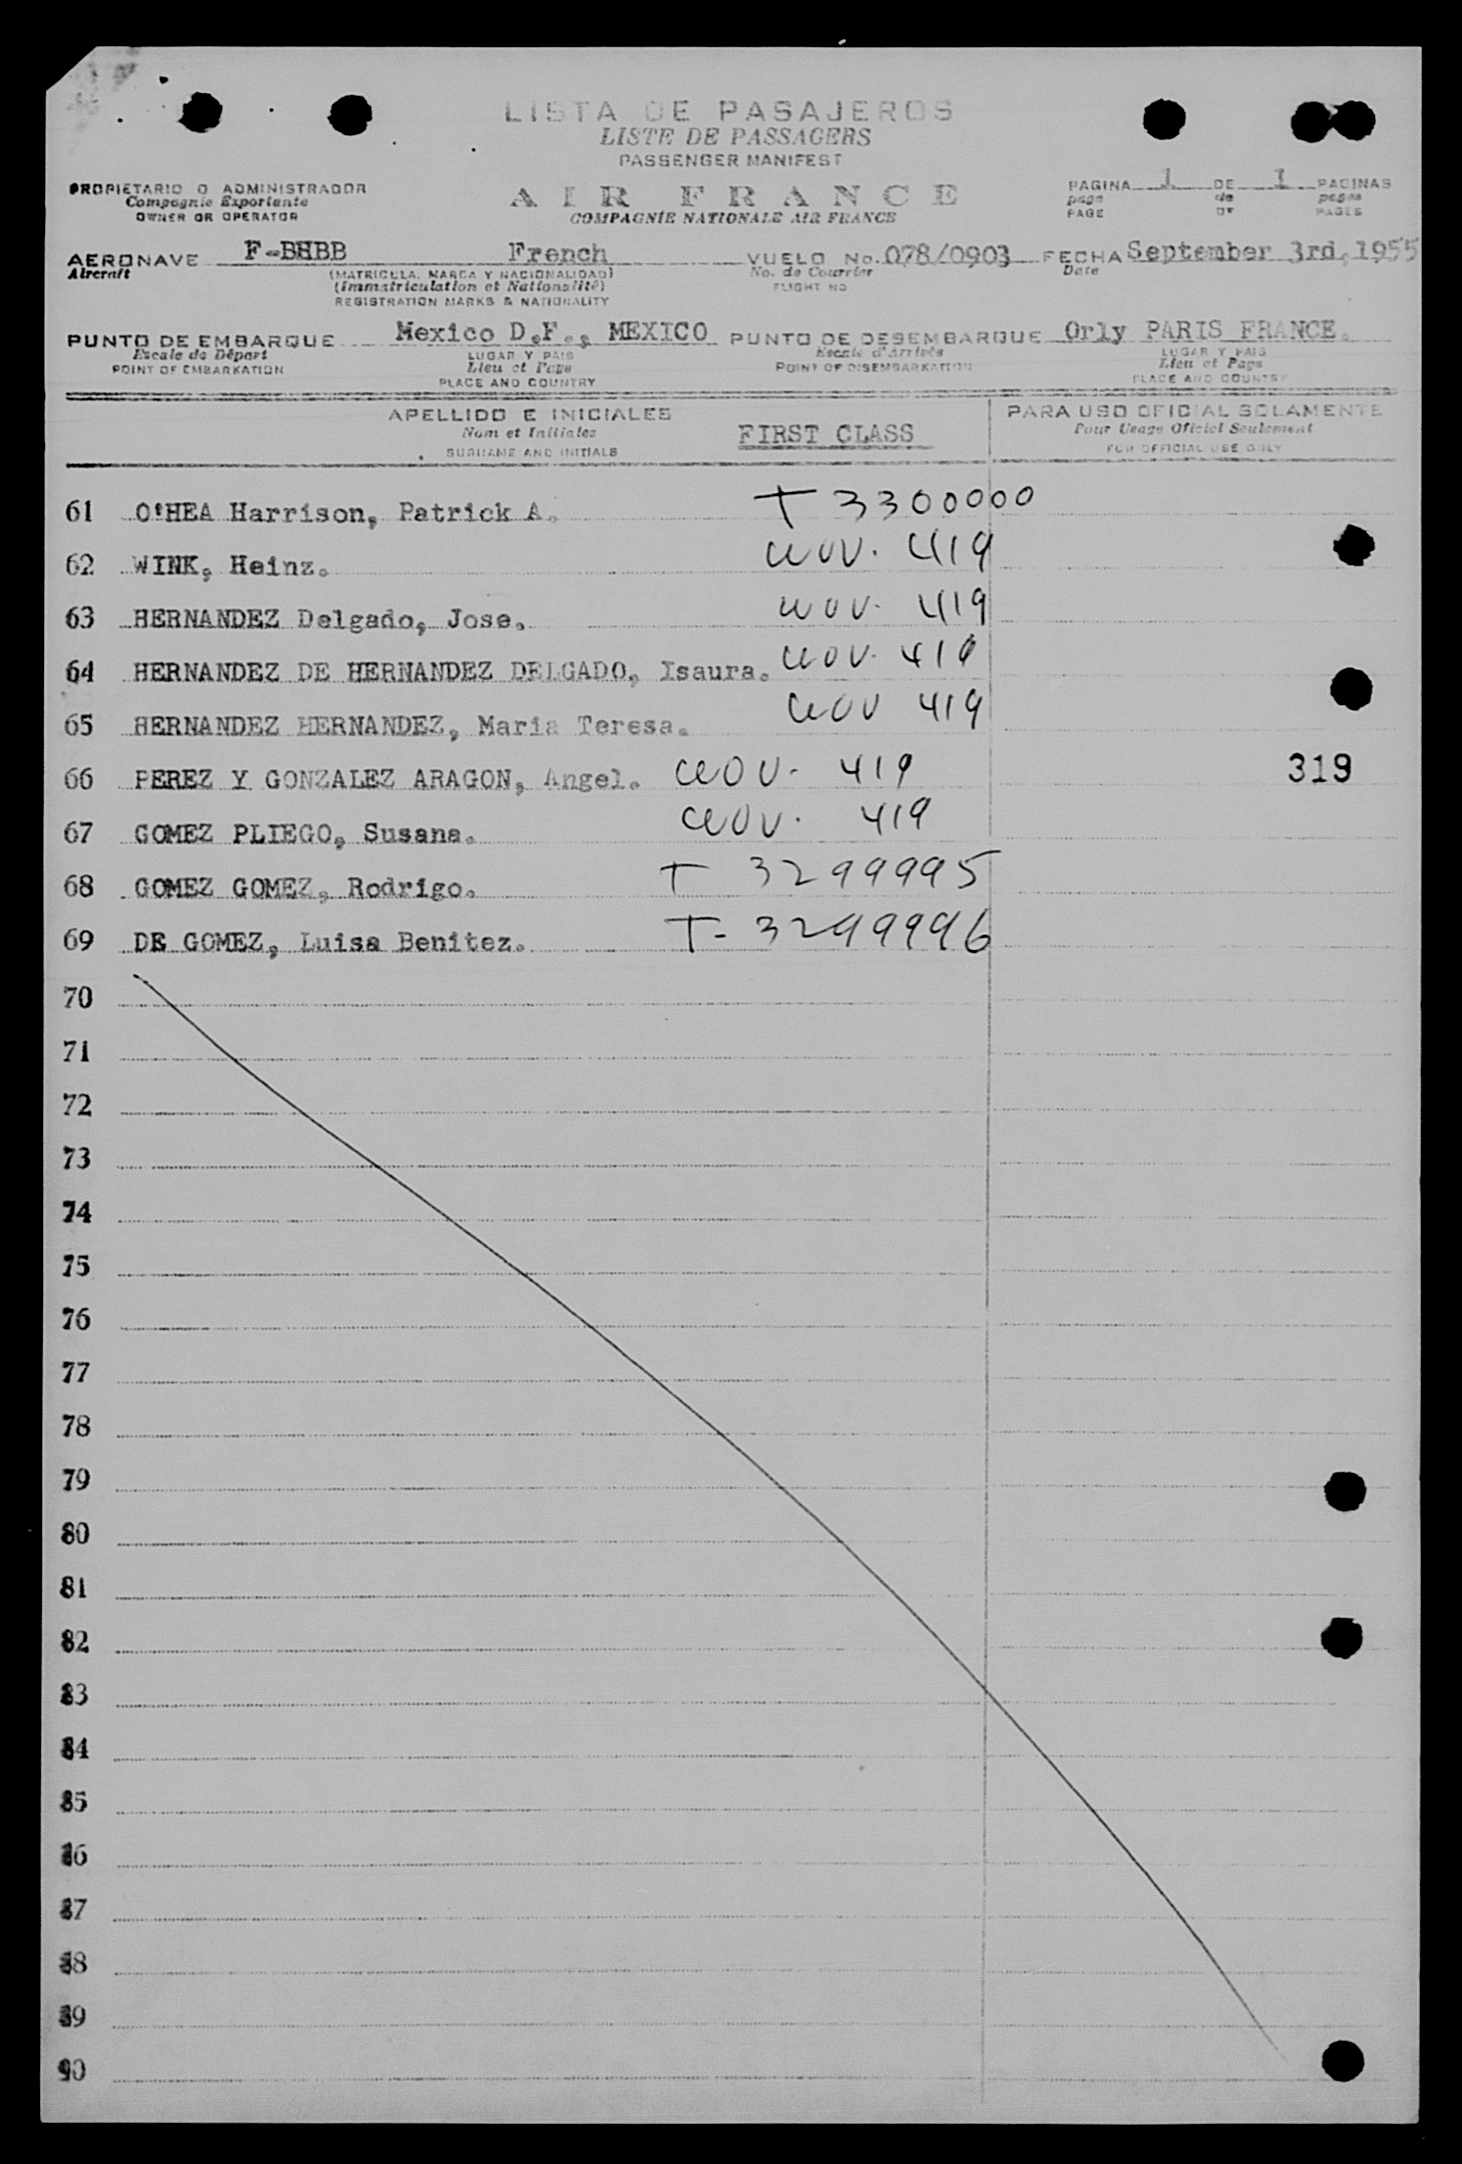 LISTA DE PASAJEROS
LISTE DE PASSAGERS
PASSENGER MANIFEST
PROPIETARIO O ADMINISTRADOR
Compagnie Exportante
OWNER OR OPERATOR
AIR FRANCE
COMPAGNIE NATIONALE AIR FRANCE
PAGINA 1 DE 1 PAGINAS
page de pages
PAGE OF PAGES
AERONAVE F-BHBB French VUELO No. 078/0903 FECHA September 3rd, 1955
Aircraft (MATRICULA, MARCA Y NACIONALIDAD) No. de Courrier Date
(Immatriculation et Nationalité) FLIGHT NO
REGISTRATION MARKS & NATIONALITY
PUNTO DE EMBARQUE Mexico D.F., MEXICO PUNTO DE DESEMBARQUE Orly PARIS FRANCE.
Escale de Départ LUGAR Y PAIS Escale d'Arrivée LUGAR Y PAIS
POINT OF EMBARKATION Lieu et Pays POINT OF DISEMBARKATION Lieu et Pays
PLACE AND COUNTRY PLACE AND COUNTRY
APELLIDO E INICIALES PARA USO OFICIAL SOLAMENTE
Nom et Initiales FIRST CLASS Pour Usage Oficiel Seulement
SURNAME AND INITIALS FOR OFFICIAL USE ONLY
61 O'HEA Harrison, Patrick A. T 3300000
62 WINK, Heinz. 419
63 HERNANDEZ Delgado, Jose. 419
64 HERNANDEZ DE HERNANDEZ DELGADO, Isaura. 419
65 HERNANDEZ HERNANDEZ, Maria Teresa. 419
66 PEREZ Y GONZALEZ ARAGON, Angel. 419 319
67 GOMEZ PLIEGO, Susana. 419
68 GOMEZ GOMEZ, Rodrigo. T 3299995
69 DE GOMEZ, Luisa Benitez. T- 3299996
70
71
72
73
74
75
76
77
78
79
80
81
82
83
84
85
86
87
88
89
90